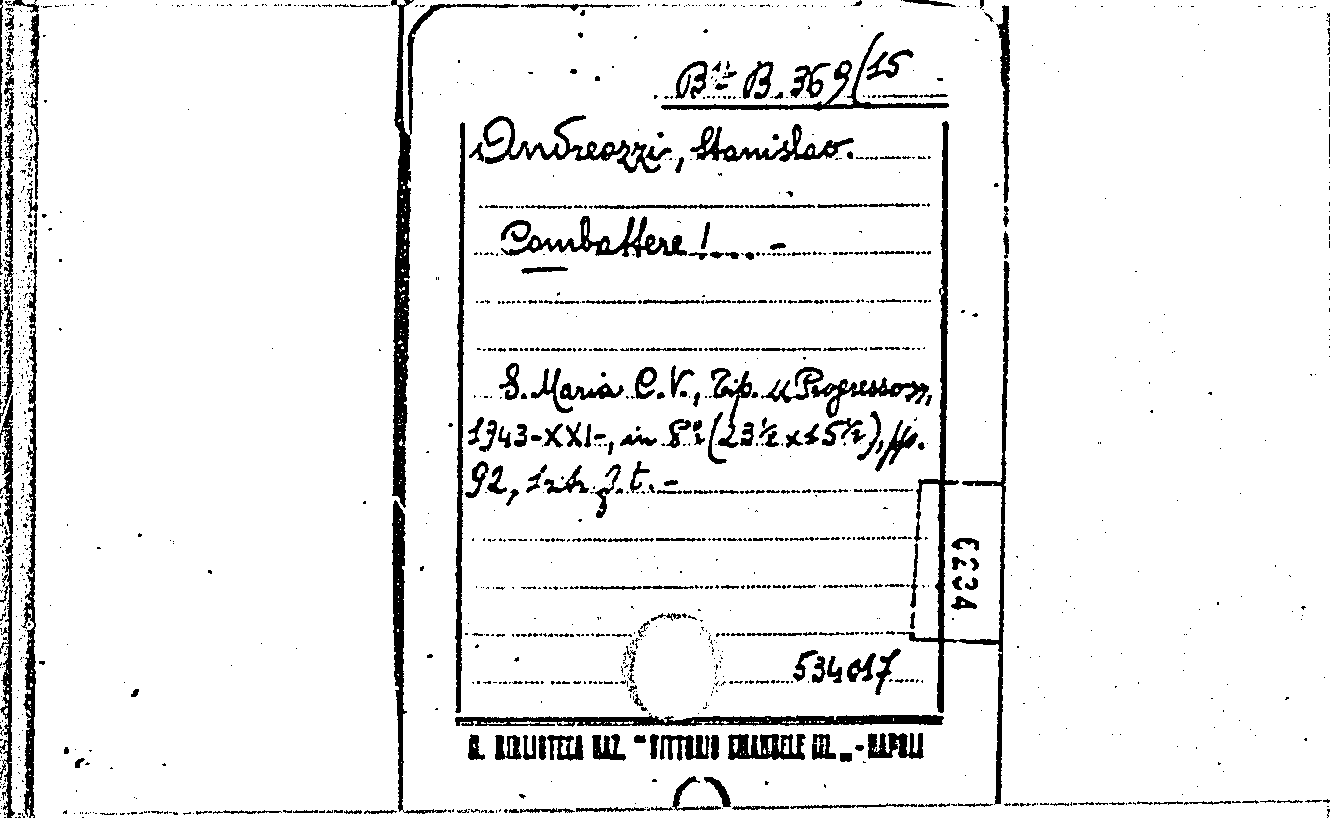 Bta B.369/15
Andreozzi, Stanislao.
Combattere!.... -
S. Maria C.V., Tip. "Progresso",
1943-XXI-, in 8º (23½ x 15½), pp.
92, f.t. -
6234
534017
R. BIBLIOTECA NAZ. "VITTORIO EMANUELE III." - NAPOLI